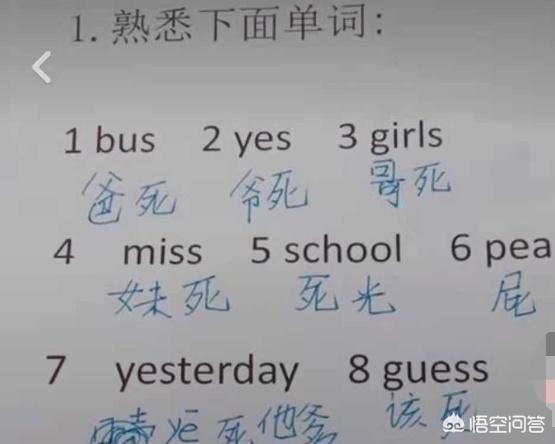 1. 熟悉下面单词:
1 bus 2 yes 3 girls
爸死 爷死 哥死
4 miss 5 school 6 pea
妹死 死光 屁
7 yesterday 8 guess
yē死他爹 该死
悟空问答